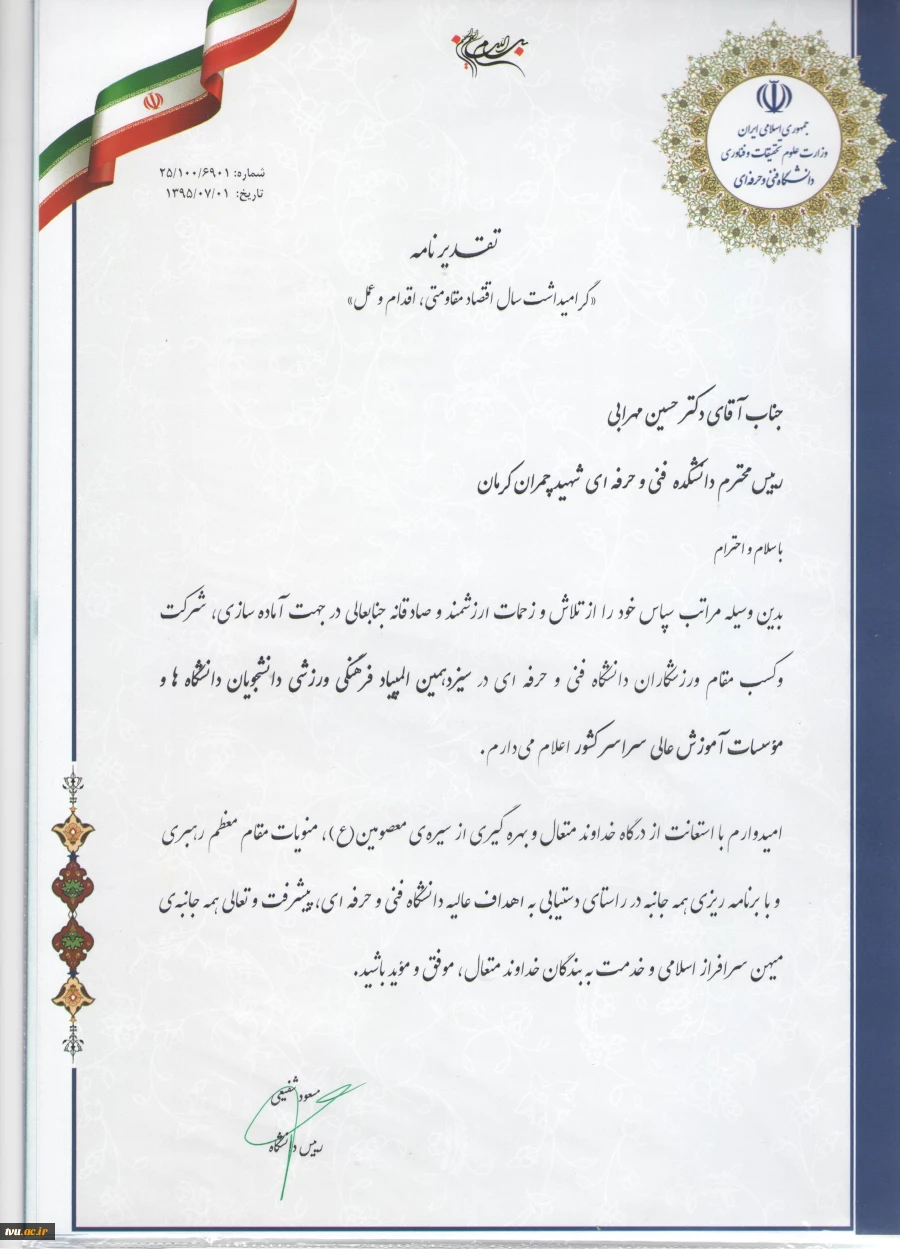 بسم الله الرحمن الرحیم
جمهوری اسلامی ایران
وزارت علوم تحقیقات و فناوری
دانشگاه فنی و حرفه‌ای
شماره: ۲۵/۱۰۰/۶۹۰۱
تاریخ: ۱۳۹۵/۰۷/۰۱
تقدیرنامه
«گرامیداشت سال اقتصاد مقاومتی، اقدام و عمل»
جناب آقای دکتر حسین مهرابی
رییس محترم دانشکده فنی و حرفه ای شهید چمران کرمان
با سلام و احترام
بدین وسیله مراتب سپاس خود را از تلاش و زحمات ارزشمند و صادقانه جنابعالی در جهت آماده سازی، شرکت
و کسب مقام ورزشکاران دانشگاه فنی و حرفه ای در سیزدهمین المپیاد فرهنگی ورزشی دانشجویان دانشگاه ها و
مؤسسات آموزش عالی سراسر کشور اعلام می‌دارم.
امیدوارم با استعانت از درگاه خداوند متعال و بهره گیری از سیره‌ی معصومین(ع)، منویات مقام معظم رهبری
و با برنامه ریزی همه جانبه در راستای دستیابی به اهداف عالیه دانشگاه فنی و حرفه ای، پیشرفت و تعالی همه جانبه‌ی
میهن سرافراز اسلامی و خدمت به بندگان خداوند متعال، موفق و مؤید باشید.
مسعود شفیعی
رییس دانشگاه
tvu.ac.ir